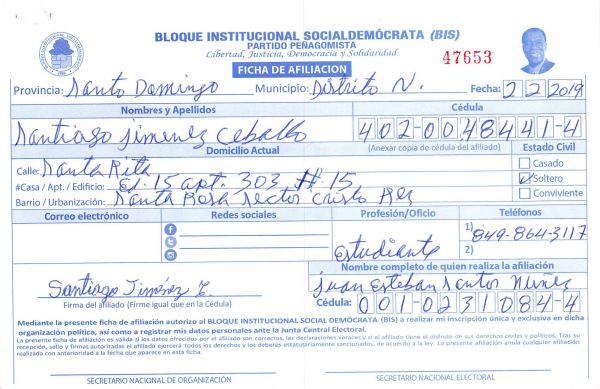 BLOQUE INSTITUCIONAL SOCIALDEMÓCRATA (BIS)
PARTIDO PEÑAGOMISTA
Libertad, Justicia, Democracia y Solidaridad
47653
FICHA DE AFILIACION
Provincia: Santo Domingo Municipio: Distrito N. Fecha: 2 2 2019
Nombres y Apellidos Cédula
Santiago Jimenez Ceballo 402-0048441-4
(Anexar copia de cédula del afiliado)
Domicilio Actual Estado Civil
Calle: Santa Rita Casado
#Casa / Apt. / Edificio: Ed. 15 apt. 303 #. 15 Soltero
Barrio / Urbanización: Santa Rosa sector Cristo Rey Conviviente
Correo electrónico Redes sociales Profesión/Oficio Teléfonos
1) 849-864-3117
2)
estudiante
Nombre completo de quien realiza la afiliación
Santiago Jiménez C. Juan Esteban Santos Nuñez
Firma del afiliado (Firme igual que en la Cédula) Cédula: 001-0231084-4
Mediante la presente ficha de afiliación autorizo al BLOQUE INSTITUCIONAL SOCIAL DEMÓCRATA (BIS) a realizar mi inscripción única y exclusiva en dicha
organización política, así como a registrar mis datos personales ante la Junta Central Electoral.
La presente ficha de afiliación es válida si los datos ofrecidos por el afiliado son correctos, las declaraciones veraces y si el afiliado tiene el disfrute de sus derechos civiles y políticos. Tras su
recepción, sello y firmas autorizadas el afiliado ejercerá todos los derechos y los deberes estatutariamente sancionados, de acuerdo a la ley. La presente afiliación anula cualquier afiliación
realizada con anterioridad a la fecha que aparece en esta ficha.
SECRETARIO NACIONAL DE ORGANIZACIÓN SECRETARIO NACIONAL ELECTORAL